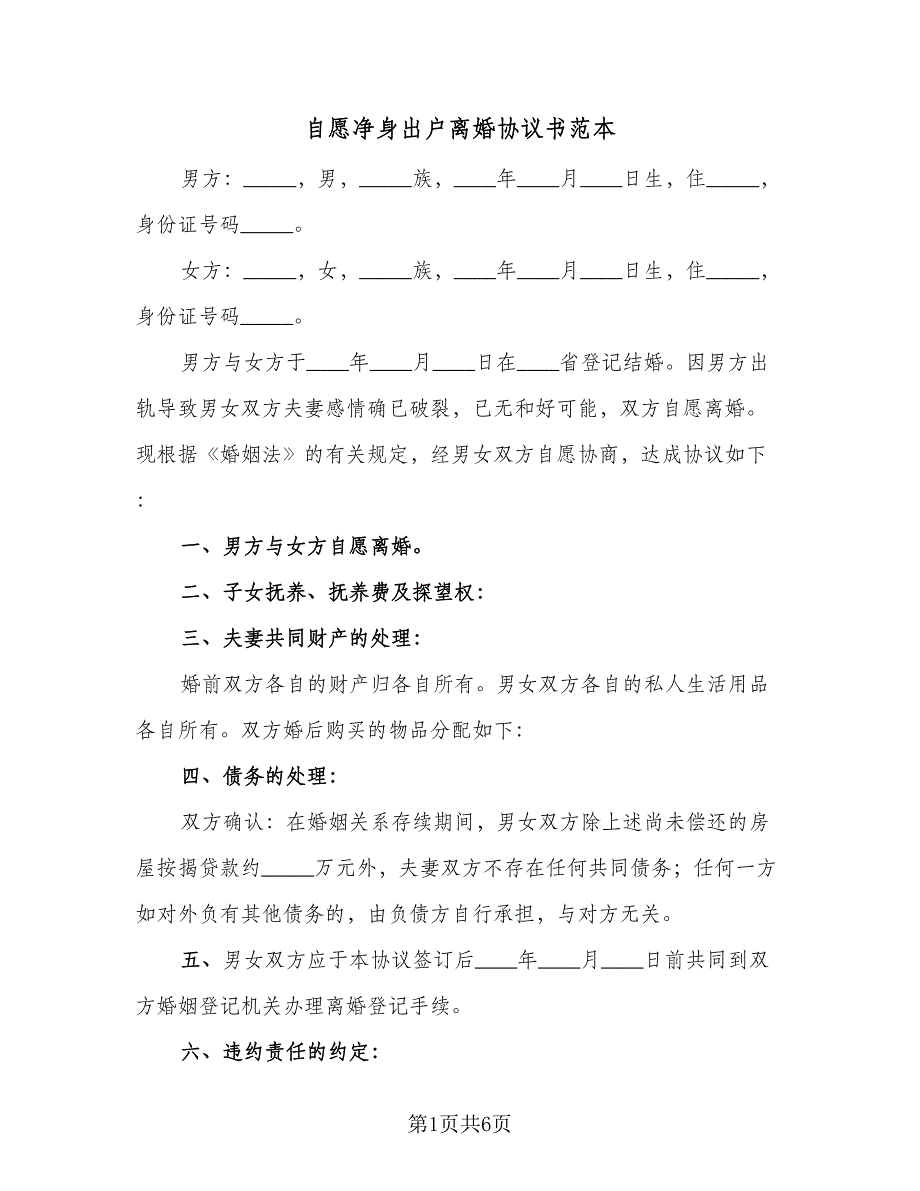 自愿净身出户离婚协议书范本
男方：_____，男，_____族，____年____月____日生，住_____，
身份证号码_____。
女方：_____，女，_____族，____年____月____日生，住_____，
身份证号码_____。
男方与女方于____年____月____日在____省登记结婚。因男方出
轨导致男女双方夫妻感情确已破裂，已无和好可能，双方自愿离婚。
现根据《婚姻法》的有关规定，经男女双方自愿协商，达成协议如下
：
一、男方与女方自愿离婚。
二、子女抚养、抚养费及探望权：
三、夫妻共同财产的处理：
婚前双方各自的财产归各自所有。男女双方各自的私人生活用品
各自所有。双方婚后购买的物品分配如下：
四、债务的处理：
双方确认：在婚姻关系存续期间，男女双方除上述尚未偿还的房
屋按揭贷款约_____万元外，夫妻双方不存在任何共同债务；任何一方
如对外负有其他债务的，由负债方自行承担，与对方无关。
五、男女双方应于本协议签订后____年____月____日前共同到双
方婚姻登记机关办理离婚登记手续。
六、违约责任的约定：
第1页共6页